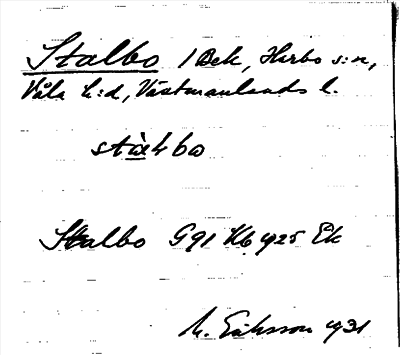 Stalbo 1 Bek, Harbo s:n,
Våla h:d, Västmanlands l.
Stalbo G91 Kb 1925 Ek
M. Eriksson 1931